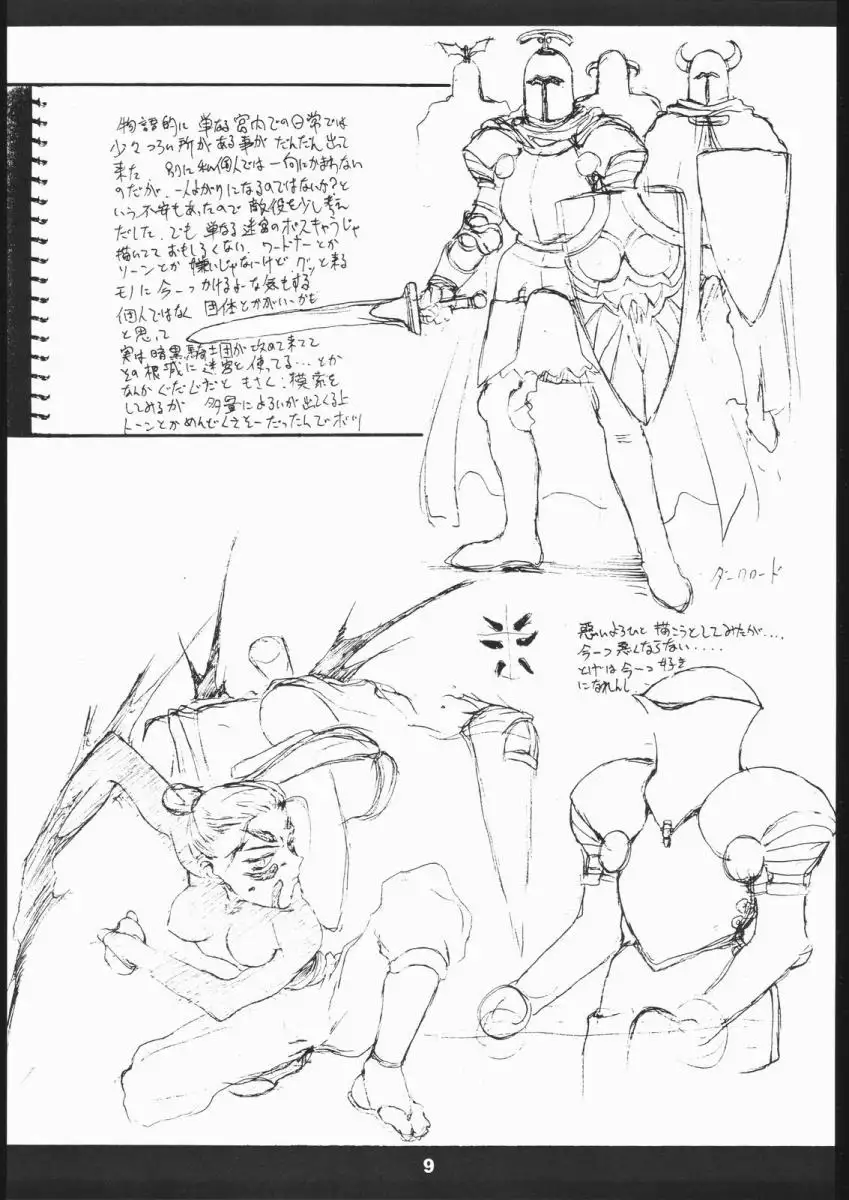 物語的に 単なる宮内での日常では
少々つらい所がある事がだんだん出て
来た 別に私個人では一向にかまわない
のだが、一人よがりになるのではないか?と
いう不安もあったので敵役を少し考え
だした、でも 単なる迷宮のボスキャラじゃ
描いてて おもしろくない、ワードナーとか
ソーンとか 嫌いじゃないけど、グッと来る
モノに 今一つかけるよーな気もする
個人ではなく 団体とかがいーかも
と思って
実は暗黒騎士団が攻めて来てて
その根城に迷宮を使ってる…とか
なんか ぐだぐだと もさく:模索を
してみるが 多量によろいが出てくる上
トーンとかめんどくさそーだったんでボツ
ダークロード
悪いよろひと 描こうとしてみたが....
今一つ悪くならない....
とげは今一つ 好き
になれんし
9